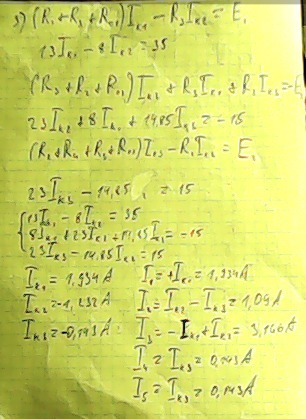 3) (R₁ + R₃ + R₀₁)Iₖ₁ − R₃Iₖ₂ = E₁
13Iₖ₁ − 8Iₖ₂ = 35
(R₃ + R₂ + R₀₂)Iₖ₂ + R₃Iₖ₁ + R₂Iₖ₃ = −E
23Iₖ₂ + 8Iₖ₁ + 14,85Iₖ₃ = −15
Iₖ₃ − R₂Iₖ₂ = E₂
23Iₖ₃ − 14,85 = 15
13Iₖ₁ − 8Iₖ₂ = 35
8Iₖ₁ + 23Iₖ₂ + 14,85Iₖ₃ = −15
23Iₖ₃ − 14,85Iₖ₂ = 15
Iₖ₁ = 1,934A I₁ = +Iₖ₁ = 1,934A
Iₖ₂ = −1,232A I₂ = Iₖ₂ − Iₖ₃ = 1,09A
Iₖ₃ = −0,143A I₃ = −Iₖ₁ + Iₖ₂ = 3,166A
I₄ = Iₖ₃ = 0,143A
I₅ = Iₖ₃ = 0,143A